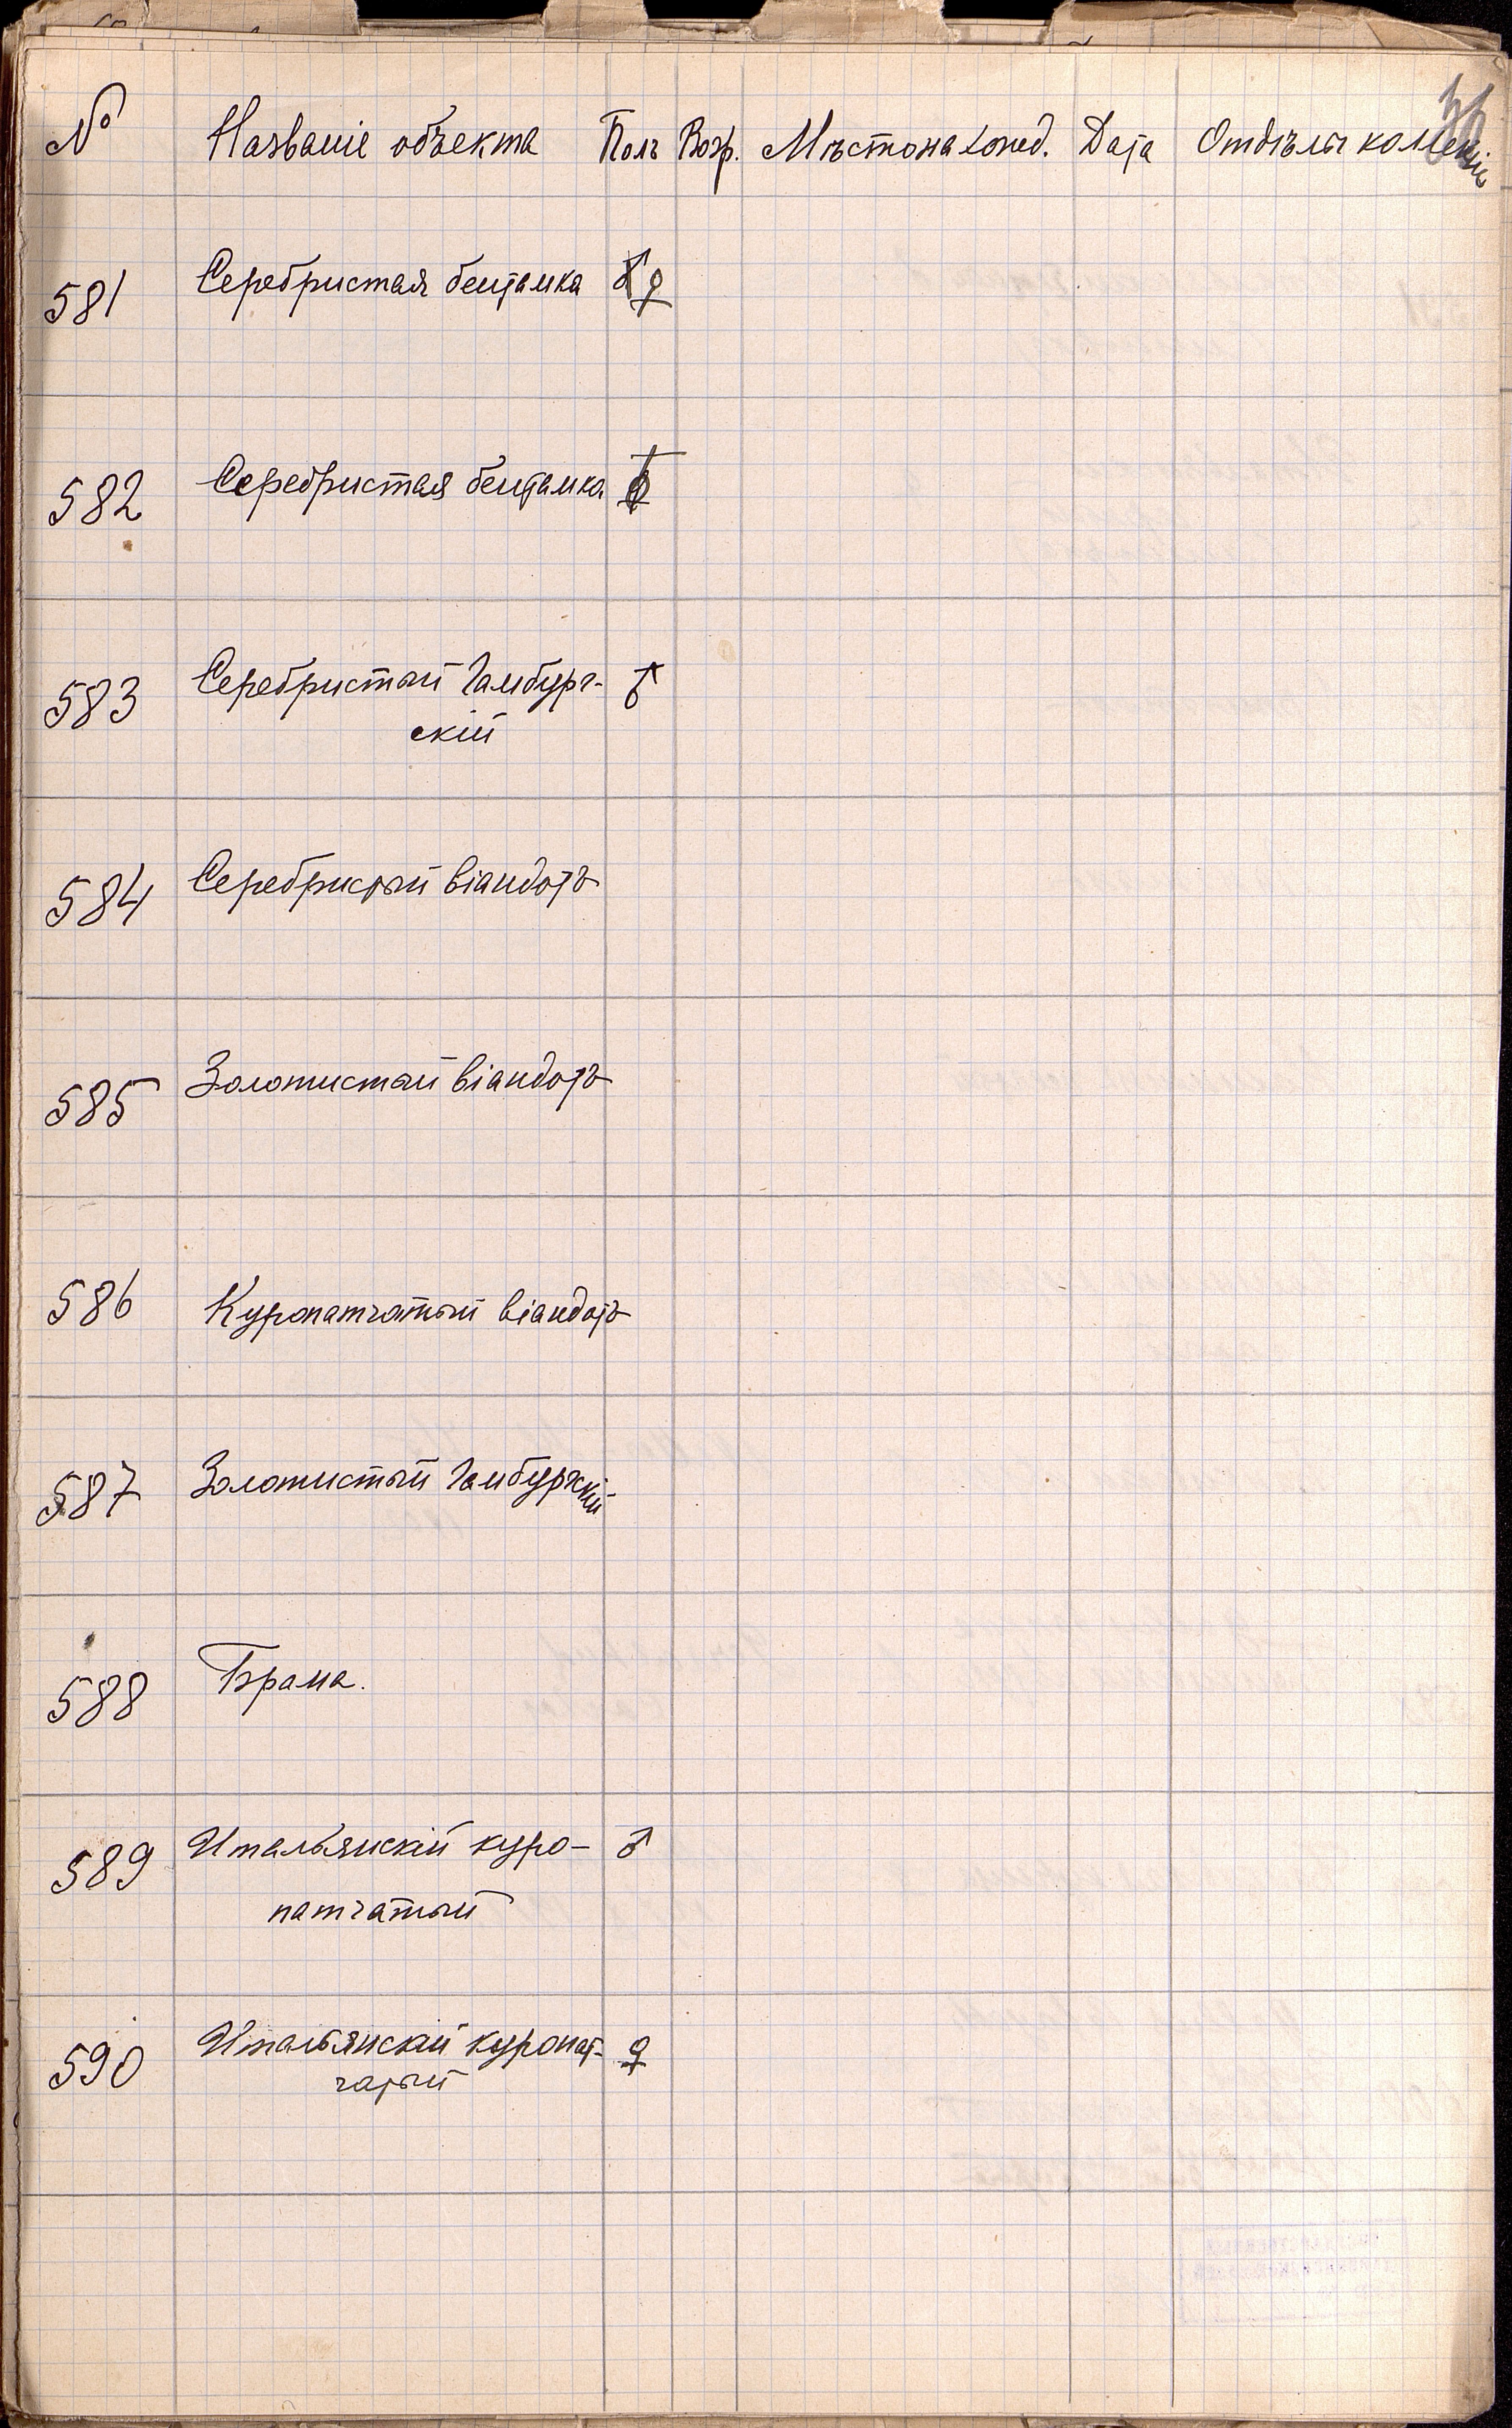 № Названіе объекта Полъ Возр. Мѣстонахожд. Дата Отдѣлъ коллекціи
581 Серебристая бентамка ♂♀
582 Серебристая бентамка
583 Серебристый гамбург- ♂
скій
584 Серебристый віандотъ
585 Золотистый віандотъ
586 Куропатчатый віандотъ
587 Золотистый гамбургскій
588 Брама.
589 Итальянскій куро- ♂
патчатый
590 Итальянскій куропат- ♀
чатый